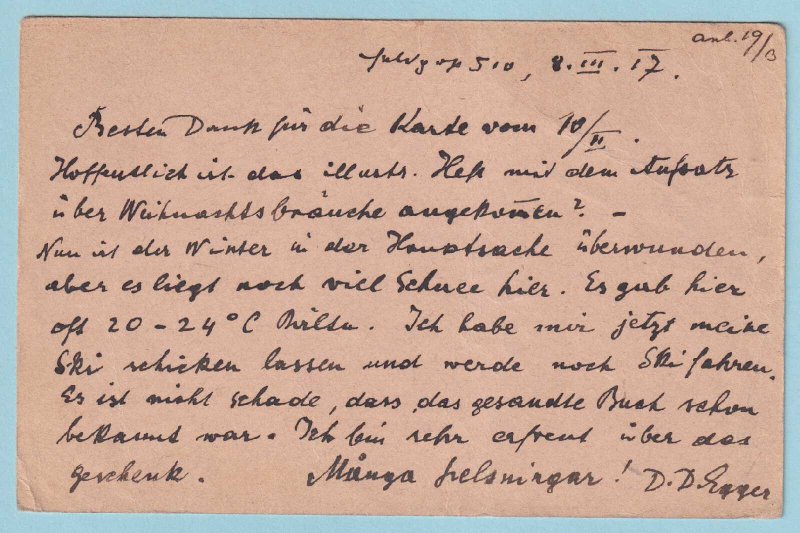 ank. 19/3
Feldpost 510, 8.III.17.
Besten Dank für die Karte vom 10/II.
Hoffentlich ist das illustr. Heft mit dem Aufsatz
über Weihnachtsbräuche angekommen? –
Nun ist der Winter in der Hauptsache überwunden,
aber es liegt noch viel Schnee hier. Es gab hier
oft 20–24°C Kälte. Ich habe mir jetzt meine
Ski schicken lassen und werde noch Ski fahren.
Es ist nicht schade, dass das gesandte Buch schon
bekannt war. Ich bin sehr erfreut über das
geschenk. Många helsningar! D. D. Egger